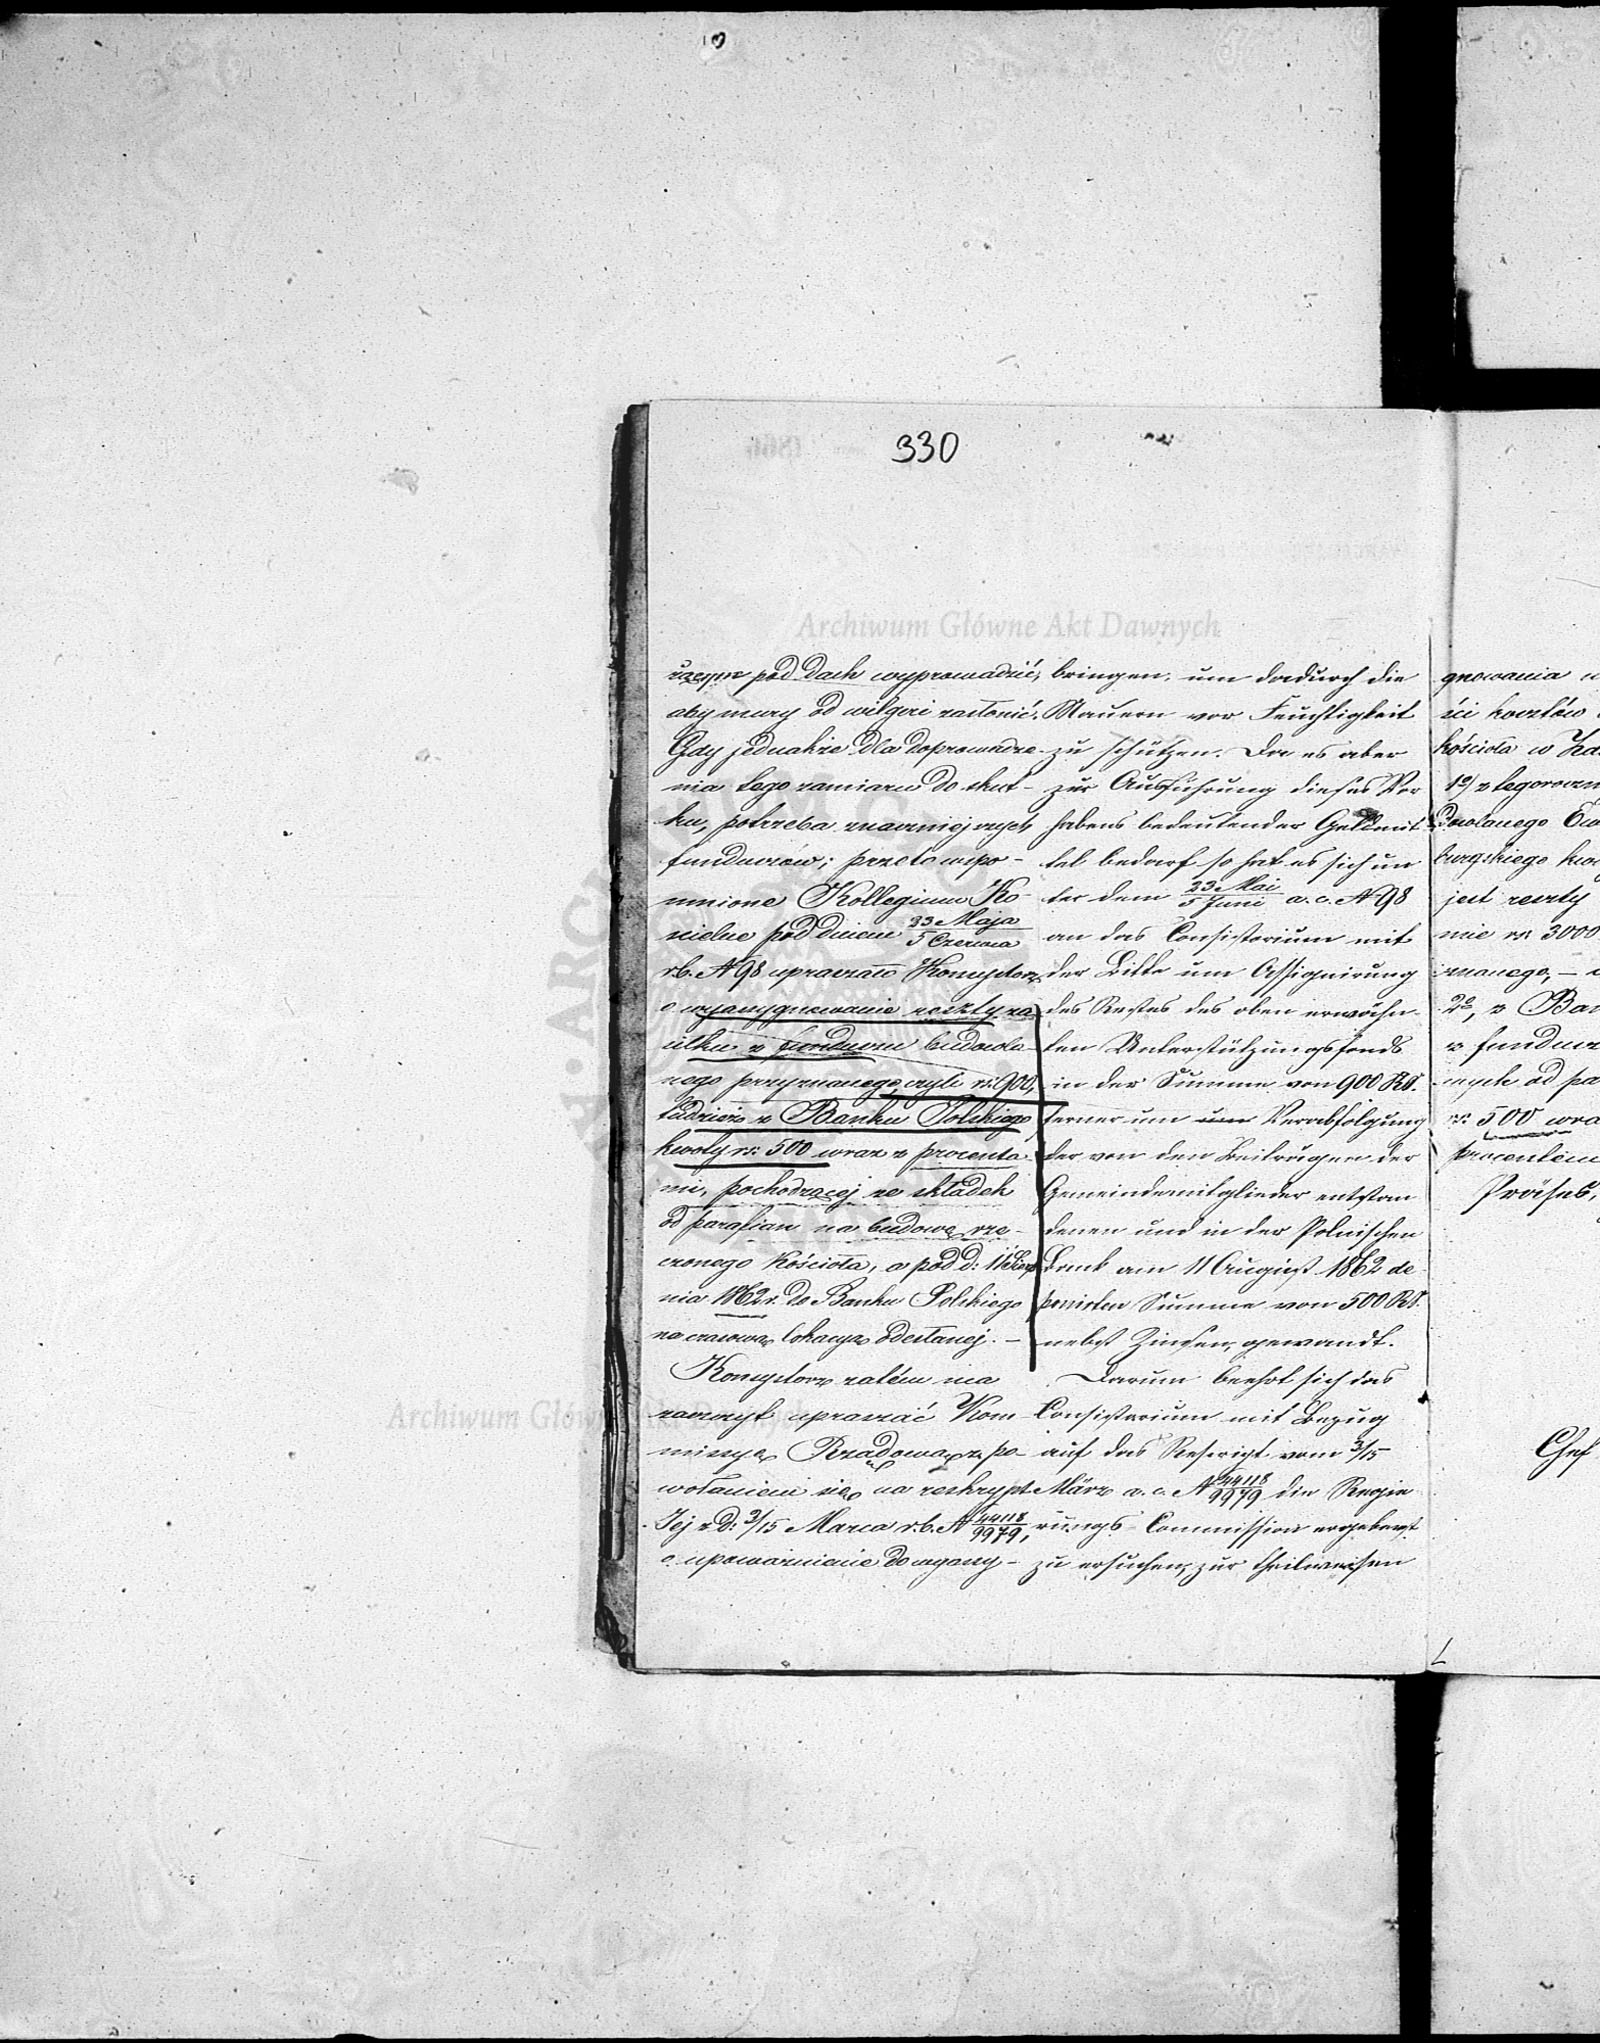 330
Archiwum Główne Akt Dawnych
pod dach wyprowadzić,
aby mury od wilgoci zasłonić.
Gdy jednakże dla doprowadze-
nia tego zamiaru do skut-
ku, potrzeba znaczniejszych
funduszów; przeto wspo-
mnione Kollegium Ko-
scielne pod dniem 23 Maja / 5 Czerwca
r.b. N 98 upraszało Konsystorz
o wyassygnowanie reszty za-
siłku z funduszu budowla-
nego przyznanego, czyli rs: 900,
tudzież z Banku Polskiego
kwoty rs: 500 wraz z procenta-
mi, pochodzącej ze składek
od parafian na budowę rze-
czonego Kościoła, a pod d: 11 Sierp
nia 1862 r. do Banku Polskiego
na czasową lokacyą odesłanej. –
Konsystorz zatém ma
zaszczyt upraszać Kom-
missyą Rządową, z po-
wołaniem się na reskrypt
Jej z d: 3/15 Marca r.b. N 44118/9979,
o upoważnienie do wyassy-
bringen, um dadurch die
Mauern vor Feuchtigkeit
zu schützen. Da es aber
zur Ausführung dieses Vor
habens bedeutender Geldmit
tel bedarf so hat es sich un
ter dem 23 Mai / 5 Juni a. c. N 98
an das Consistorium mit
der Bitte um Assignirung
des Restes des oben erwähn-
ten Unterstützungsfonds
in der Summe von 900 RS.
ferner um um Verabfolgung
der von den Beiträgen der
Gemeindemitglieder entstan
denen und in der Polnischen
Bank am 11 August 1862 de
ponirten Summe von 500 RS.
nebst Zinsen, gewandt.
Darum beehrt sich das
Consistorium mit Bezug
auf das Rescript vom 3/15
März a. c. N 44118/9979 die Regie
rungs-Commission ergebenst
zu ersuchen, zur theilweisen
gnowania
ści kosztów
kościoła w
1o/ z tegoroczn
burgskiego
jest reszty
mie rs: 3000
znanego, –
2o, z Ban
z fundusz
nych od pa
rs: 500 wra
procentem
Präses,
Chef
Archiwum Główne Akt Dawnych